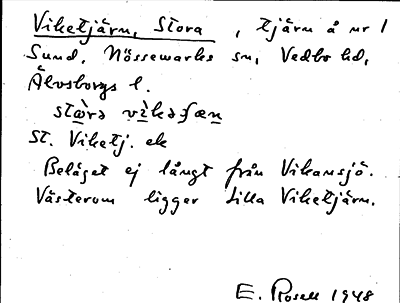 Viketjärn, Stora, tjärn å nr 1
Sund, Nössemarks sn, Vedbo hd,
Älvsborgs l.
St. Viketj. ek
Beläget ej långt från Vikansjö.
Västerom ligger Lilla Viketjärn.
E. Rosell 1948